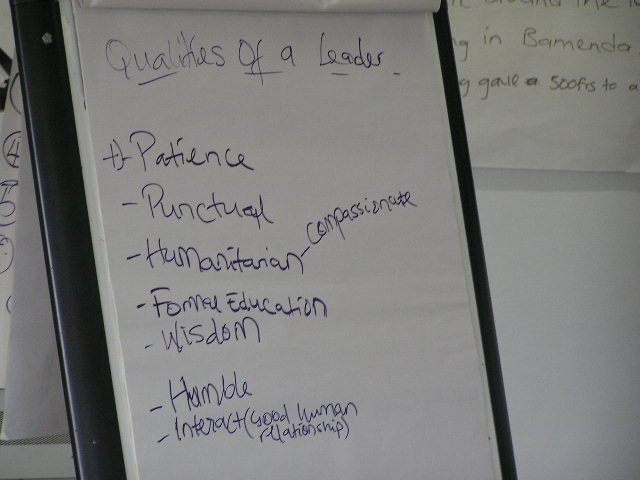 Qualities Of a Leader
Patience
- Punctual
- Humanitarian - compassionate
- Formal Education
- Wisdom
- Humble
- Interact (Good human
relationship)
around the
in Bamenda
gave 500frs to a